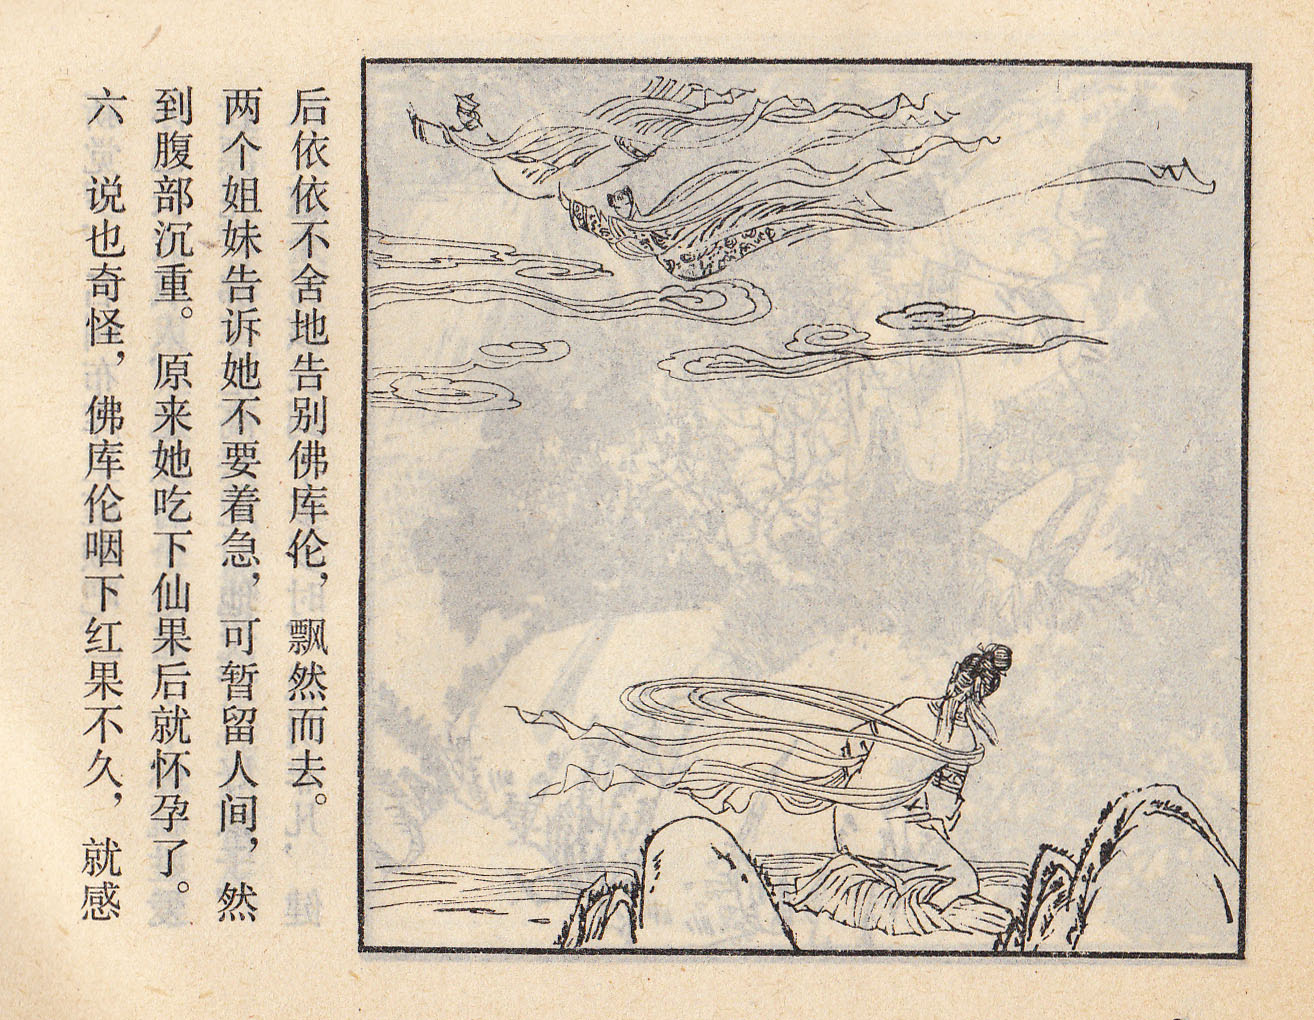 六 说也奇怪，佛库伦咽下红果不久，就感
到腹部沉重。原来她吃下仙果后就怀孕了。
两个姐妹告诉她不要着急，可暂留人间，然
后依依不舍地告别佛库伦，飘然而去。